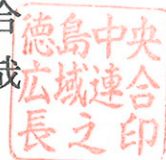 徳島中央
広域連合
長之印